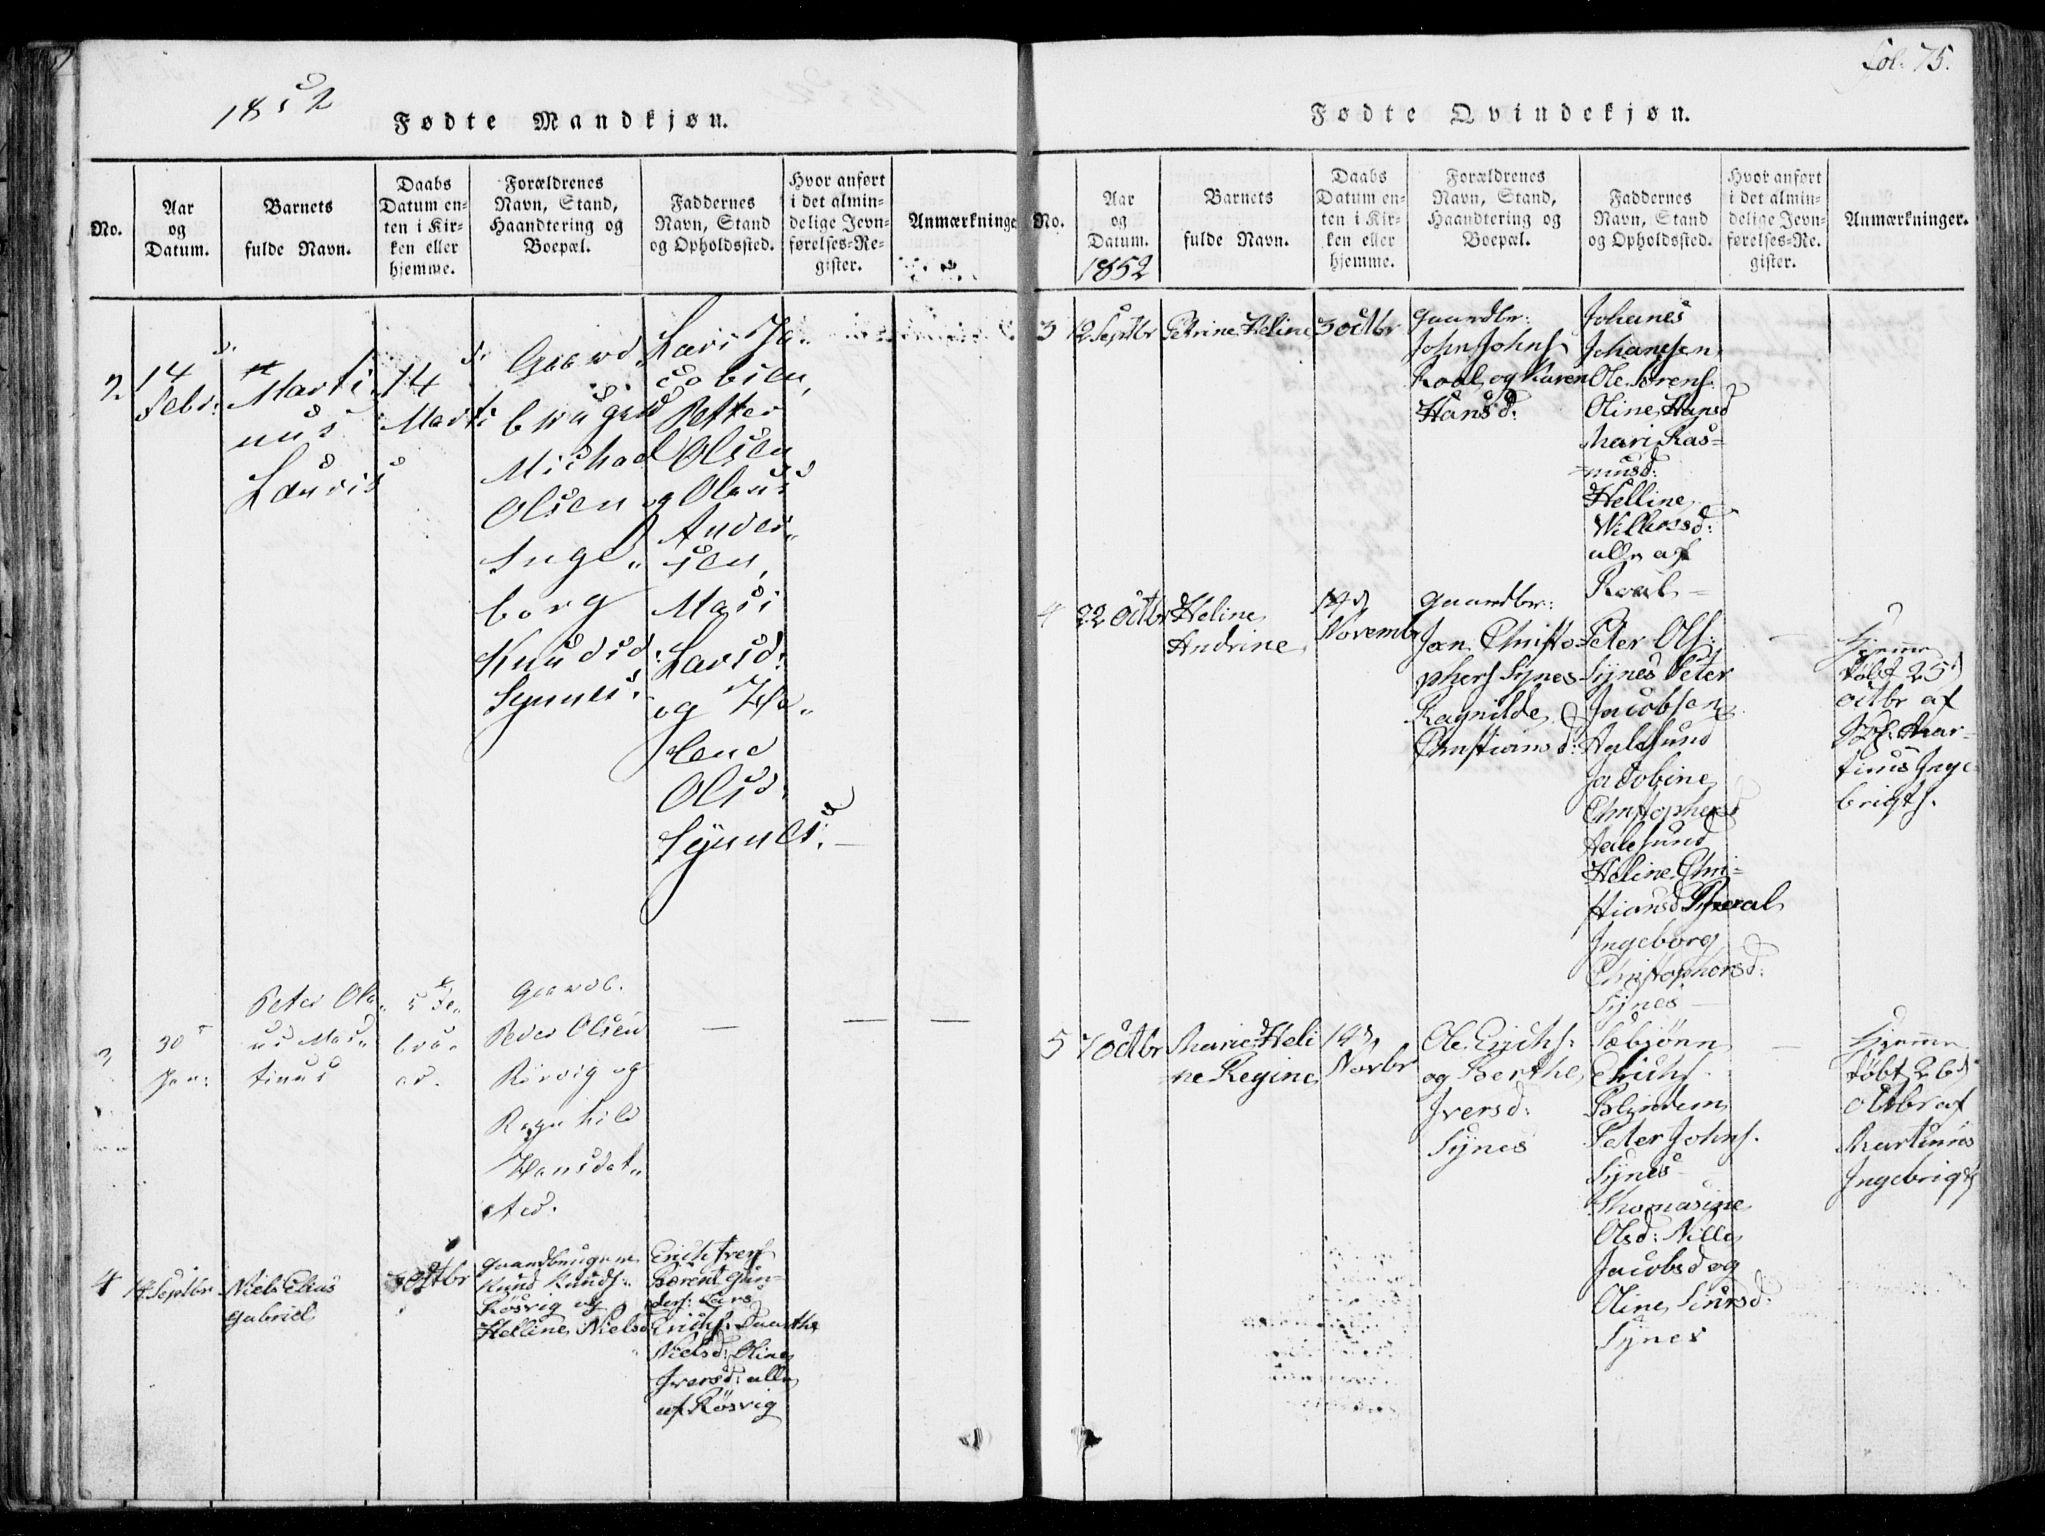 1852
Fødte Mandkjøn.
No.
Aar
og
Datum.
Barnets
fulde Navn.
Daabs
Datum en-
ten i Kir-
ken eller
hjemme.
Forældrenes
Navn, Stand,
Haandtering og
Boepæl.
Faddernes
Navn, Stand
og Opholdssted.
Hvor anført
i det almin-
delige Jevn-
førelses-Re-
gister.
Anmærkninge
2
14
Febr:
Marti-
nus
Lauris
14
Marts
Gaard-
bruger
Michael
Olsen og
Inge-
borg
Knudsd:
Synnes.
Lars Ja-
cobsen,
Petter
Olsen
Olaus
Ander-
sen,
Mari
Larsd:
og
Olsd:
Synnes. —
3
30
Jan:
Peter Ola-
us Mar-
tinus
5 Fe-
bru-
ar.
Gaardb.
Peder Olsen
Rörvig og
Ragnhild
Hansdat-
ter.
— — —
4
14 Septbr
Niels Elias
Gabriel
3 Octbr
Gaardbrugere
Knud Knuds:
Rösvig og
Helline Nielsd:
Erich Ivers
Berent Gun-
ders: Lars
Erichs:
Nielsd: Oline
Iversd: alle
af Rösvig
Fol: 75.
Fødte Qvindekjøn.
No.
Aar
og
Datum.
1852
Barnets
fulde Navn.
Daabs
Datum en-
ten i Kir-
ken eller
hjemme.
Forældrenes
Navn, Stand,
Haandtering og
Boepæl.
Faddernes
Navn, Stand
og Opholdssted.
Hvor anført
i det almin-
delige Jevn-
førelses-Re-
gister.
Anmærkninger.
3
12 Septbr
Petrine Heline
3 Octbr
Gaardbr:
John Johns
Roal og Karen
Hansd:
Johanes
Johansen
Ole Sørens
Oline Hansd
Mari Ras-
musd:
Helline
Willumsd:
alle af
Roal —
4
22 Octbr
Heline
Andrine
14d
Novembr
Gaardbr:
Jon Christo-
phers Synes
Ragnilde
Christiansd:
Peter Ols:
Synes Peter
Jacobsen
Aalesund
Jacobine
Christophersd
Aalesund
Heline Chri-
stiansd
Ingeborg
Christophersd:
Synes —
—
Hjemme
döbt 25d
Octbr af
Mar-
tinus Inge-
brigts.
5
7 Octbr
Marie Heli
ne Regine
14d
Novbr
Ole Erichs:
og Berthe
Iversd:
Synes
Sæbjönn
Erichs
Blindem
Peter Johns.
Synes
Thomasine
Olsd: Nille
Jacobsd og
Oline Siversd:
Synes
—
Hjemme
döbt 26d
Octbr af
Martinus
Ingebrigts